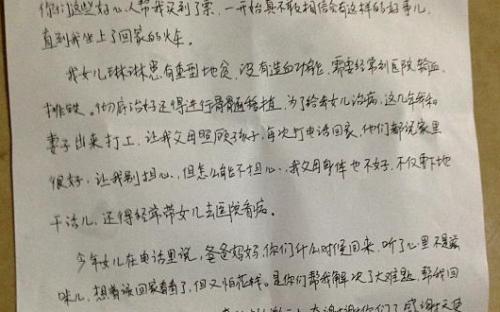 你们这些好心人帮我买到了票，一开始真不敢相信会有这样的好事儿，
直到我坐上了回家的火车。
我女儿琳琳患有重型地贫，没有造血功能，需要经常到医院输血、
排铁。彻底治好还得进行骨髓移植，为了给女儿治病，这几年和
妻子出来打工，让我父母照顾孩子，每次打电话回家，他们都说家里
很好，让我别担心，但怎么能不担心，我父母身体也不好，不仅要下地
干活儿，还得经常带女儿去医院看病。
今年女儿在电话里说，爸爸妈妈，你们什么时候回来，听了心里不是滋
味儿，想着该回家看看了，但又怕花钱。是你们帮我解决了大难题，帮我回
谢谢你们了 感谢天使